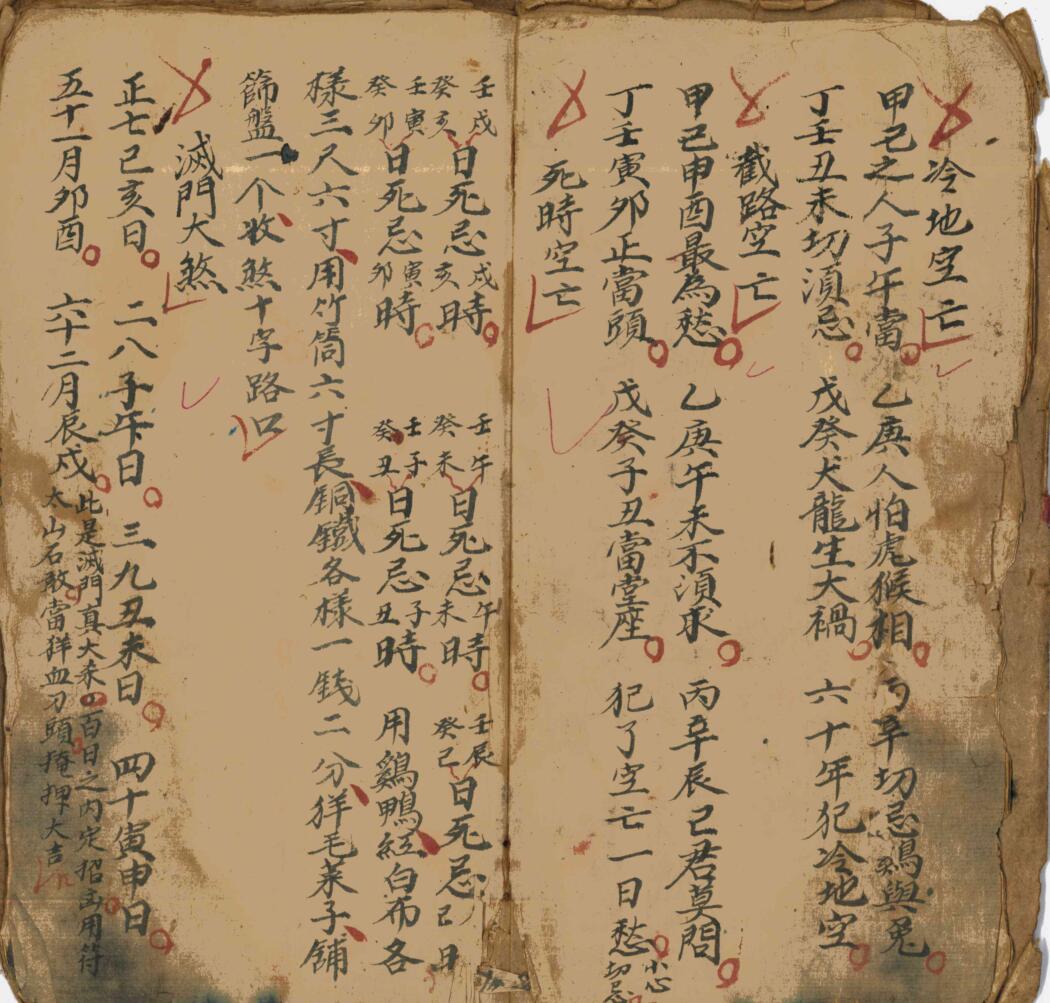 冷地空亡
甲己之人子午當 乙庚人怕虎猴相 辛切忌與兔
丁壬丑未切須忌 戊癸犬龍生大禍 六十年犯冷地空
截路空亡
甲己申酉最為愁 乙庚午未不須求 丙辛辰巳君莫問
丁壬寅卯正當頭 戊癸子丑當堂座 犯了空亡一日愁 小心切忌
死時空亡
壬戌癸亥日死忌戌亥時 壬午癸未日死忌午未時 壬辰癸巳日死忌
壬寅癸卯日死忌寅卯時 壬子癸丑日死忌子丑時 用鷄鴨紅白布各
樣三尺六寸用竹筒六寸長銅鐵各樣一錢二分羊毛菜子鋪
篩盤一个收煞十字路口
滅門大煞
正七巳亥日 二八子午日 三九丑未日 四十寅申日
五十一月卯酉 六十二月辰戌 此是滅門真大杀百日之內定招凶用符
太山石敢當羊血刀頭掩押大吉